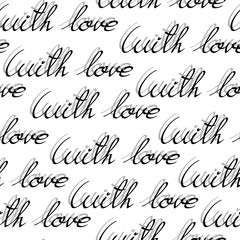 with love
with love
with love
with love
with love
with love
with love
with love
with love
with love
with love